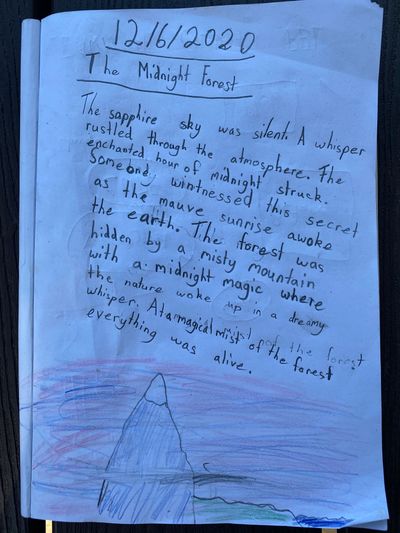 12/6/2020
The Midnight Forest
The sapphire sky was silent. A whisper
rustled through the atmosphere. The
enchanted hour of midnight struck.
Somebody wintnessed this secret
as the mauve sunrise awoke
the earth. The forest was
hidden by a misty mountain
with a midnight magic where
the nature woke up in a dreamy
whisper. At a magical mist of the forest
everything was alive.